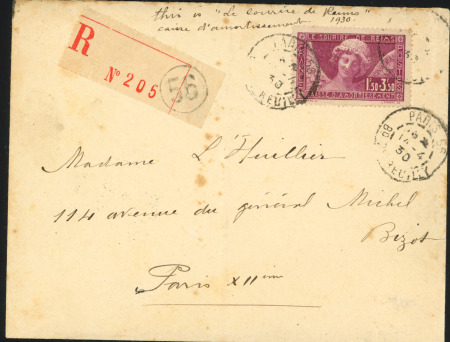 this is "Le sourire de Reims"
caisse d'amortissement 1930.
R
N° 205
PARIS
REUILLY
LE SOURIRE DE REIMS
1.50+3.50
CAISSE D'AMORTISSEMENT
PARIS
4
30
REUILLY
Madame L'Huillier
114 avenue du général Michel
Bizot
Paris XIIème